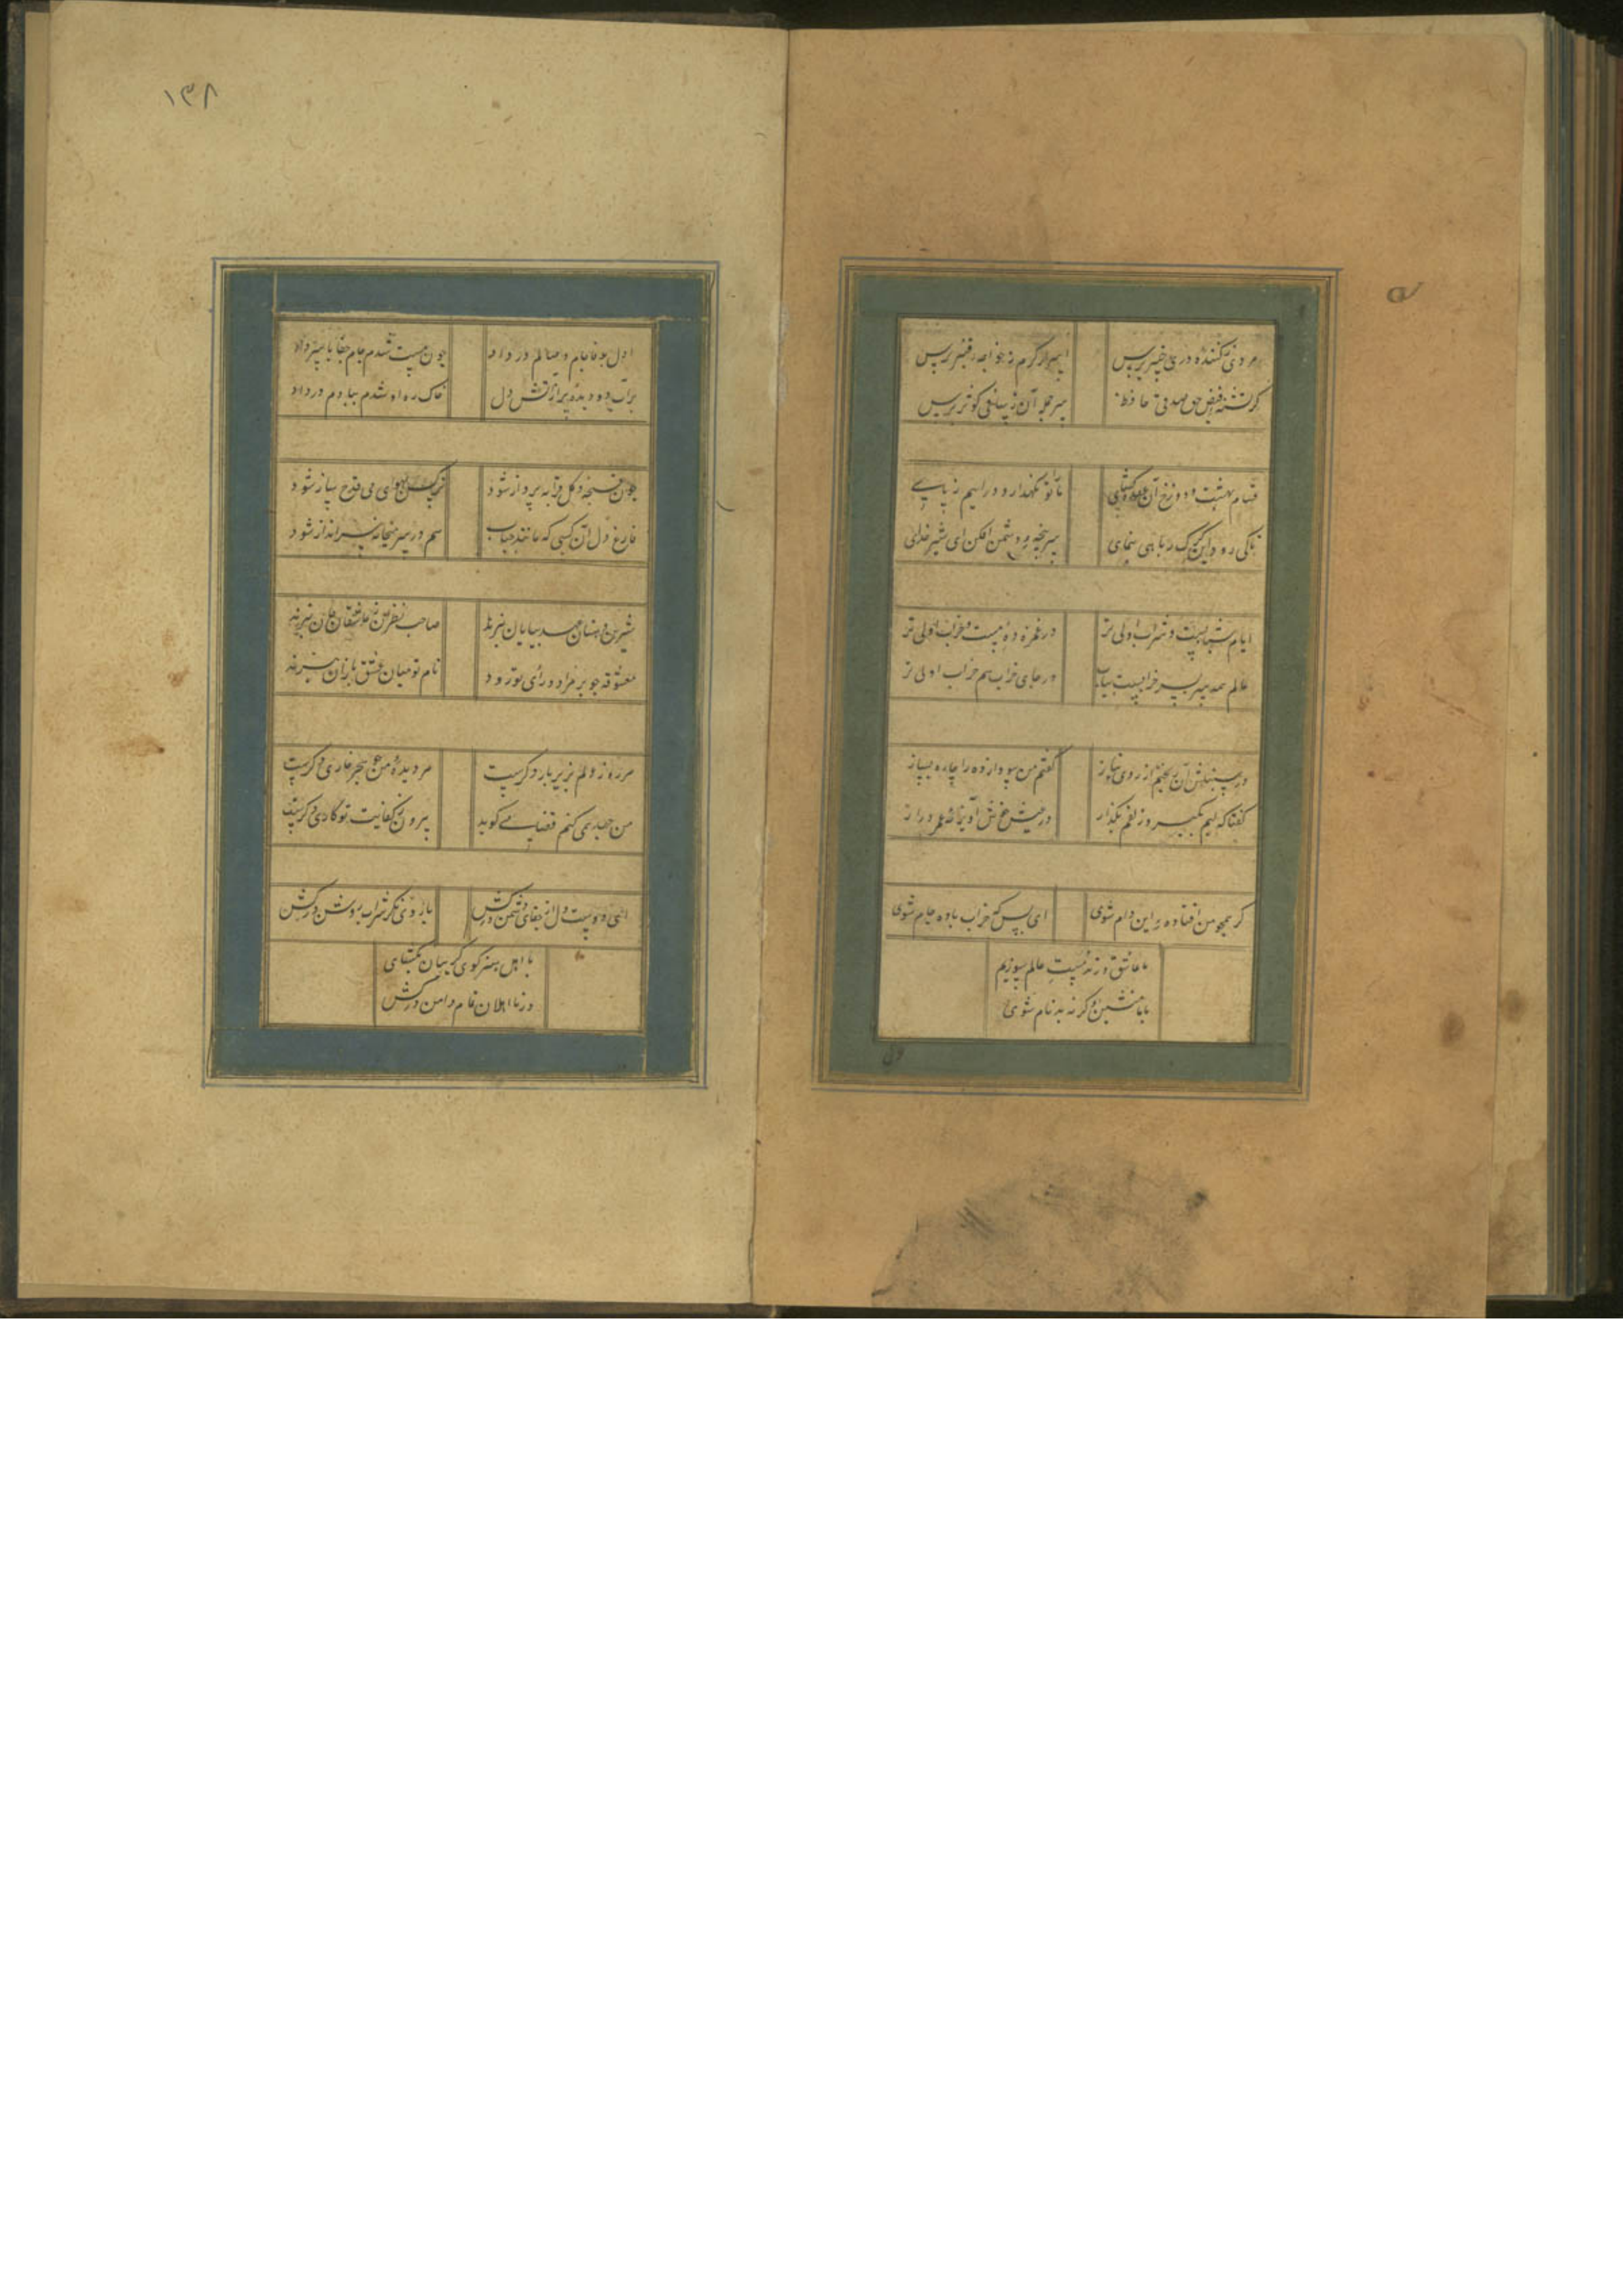 مردی ز کننده در خیبر پرس
اسرار کرم ز خواجه قنبر پرس
گر تشنه فیض حق بصدقی حافظ
سرچشمه آن ز ساقی کوثر پرس
قسام بهشت و دوزخ آن عقده کشای
ما را نگذارد که درآییم ز پای
تا کی رود این گرگ ربایی بنمای
سرپنجه دشمن افکن ای شیر خدای
ایام شبابست و شراب اولی تر
در غمزده مست و خراب اولی تر
عالم همه سر بسر خرابست و یباب
در جای خراب هم خراب اولی تر
در سنبلش آویختم از روی نیاز
گفتم من سودازده را چاره بساز
گفتا که لبم بگیر و زلفم بگذار
در عیش خوش آویز نه در عمر دراز
گر همچو من افتاده این دام شوی
ای بس که خراب باده و جام شوی
ما عاشق و رند و مست عالم سوزیم
با ما منشین و گرنه بدنام شوی
۱۳۸
اول بوفا جام وصالم در داد
چون مست شدم جام جفا را سر داد
پر آب دو دیده و پر از آتش دل
خاک ره او شدم ببادم در داد
چون غنچه گل قرابه پرداز شود
نرگس بهوای می قدح ساز شود
فارغ دل آن کسی که مانند حباب
هم در سر میخانه سرانداز شود
شیرین دهنان عهد بپایان نبرند
صاحب نظران ز عاشقان جان نبرند
معشوقه چو بر مراد و رای تو رود
نام تو میان عشق بازان نبرند
هر روز دلم بزیر بار دگرست
در دیده من ز هجر خاری دگرست
من جهد همی کنم قضا می گوید
بیرون ز کفایت تو کاری دگرست
ای دوست دل از جفای دشمن درکش
با روی نکو شراب روشن درکش
با اهل هنر گوی گریبان بگشای
وز نااهلان تمام دامن درکش